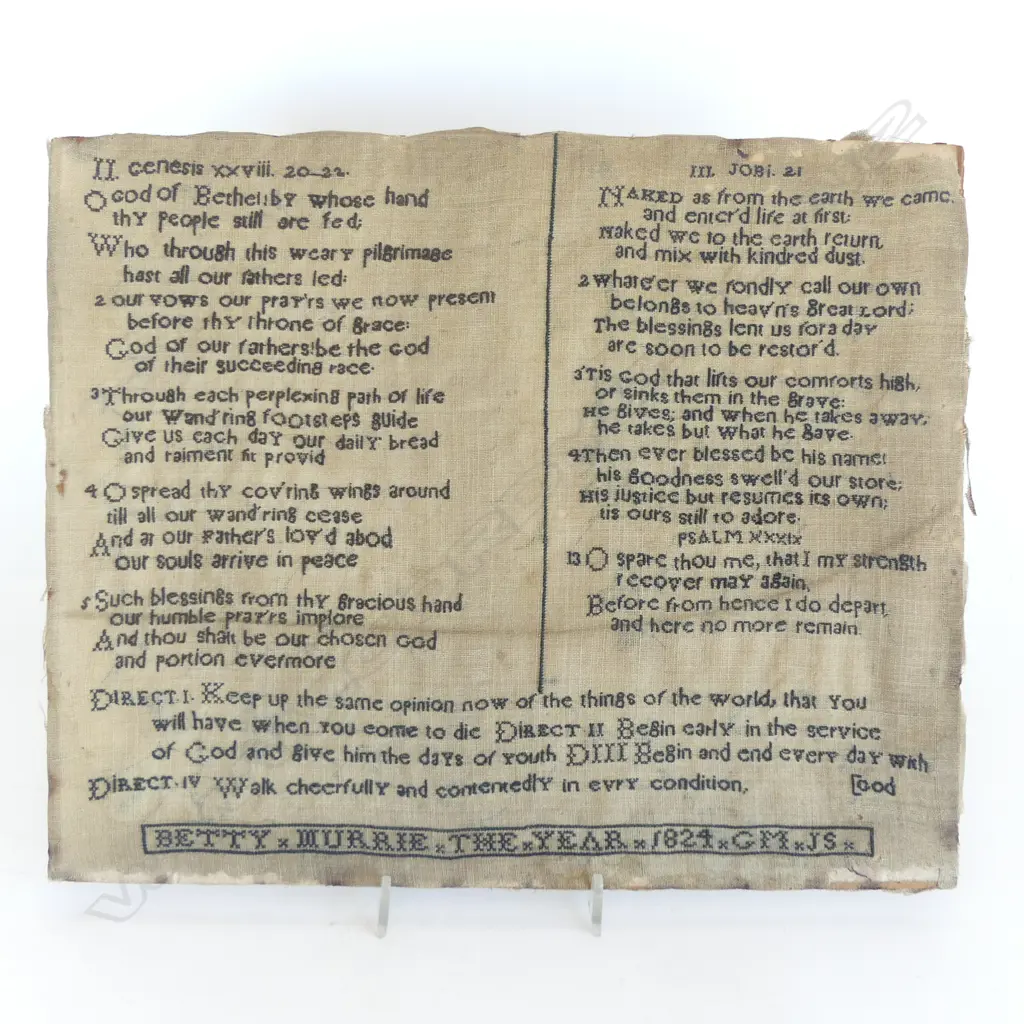 II. Genesis xxviii. 20-22.
O God of Bethel! by whose hand
thy people still are fed;
Who through this weary pilgrimage
hast all our fathers led:
2 our vows our pray'rs we now present
before thy throne of grace:
God of our fathers! be the God
of their succeeding race.
3 Through each perplexing path of life
our wand'ring footsteps guide
Give us each day our daily bread
and raiment fit provid
4 O spread thy cov'ring wings around
till all our wand'ring cease
And at our Father's lov'd abod
our souls arrive in peace
5 Such blessings from thy gracious hand
our humble pray'rs implore
And thou shalt be our chosen God
and portion evermore
III. JOB i. 21
NAKED as from the earth we came,
and enter'd life at first:
Naked we to the earth return,
and mix with kindred dust.
2 Whate'er we fondly call our own
belongs to heav'n's great Lord;
The blessings lent us for a day
are soon to be restor'd.
3 'Tis God that lifts our comforts high,
or sinks them in the grave:
He gives; and when he takes away,
he takes but what he gave.
4 Then ever blessed be his name!
his goodness swell'd our store;
His justice but resumes its own;
tis ours still to adore.
PSALM XXXIX
13 O spare thou me, that I my strength
recover may again,
Before from hence I do depart,
and here no more remain.
DIRECT. I. Keep up the same opinion now of the things of the world, that you
will have when you come to die DIRECT II Begin early in the service
of God and give him the days of youth DIII Begin and end every day with
DIRECT. IV Walk cheerfully and contentedly in evry condition, [God
BETTY x MURRIE x THE x YEAR x 1824 x GM x JS x